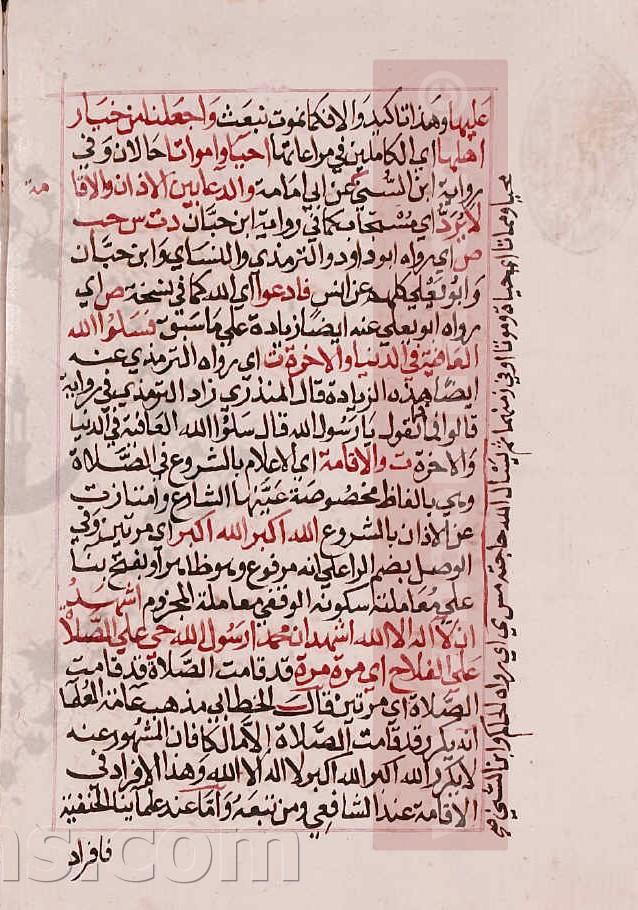 عليها وهذا تاكيد والا فكما نموت نبعث واجعلنا من خيار
اهلها اي الكاملين في مراعاتها احياء وامواتا حالان وفي
رواية ابن السني عن ابي امامة والدعاء بين الاذان والاقا
مة
لا يرد اي مستجاب كما في رواية ابن حبان د ت س حب
ص اي رواه ابو داود والترمذي والنساي وابن حبان
وابو يعلي كلهم عن انس فادعوا اي الله كما في نسخة ص اي
رواه ابو يعلي عنه ايضا زيادة علي ما سبق فسلوا الله
العافية في الدنيا والاخرة ت اي رواه الترمذي عنه
ايضا بهذه الزيادة قال المنذري زاد الترمذي في رواية
قالوا فما نقول يا رسول الله قال سلوا الله العافية في الدنيا
والاخرة ت والاقامة اي الاعلام بالشروع في الصلاة
وهي بالفاظ مخصوصة عينها الشارع وامتازت
عن الاذان بالشروع الله اكبر الله اكبر اي مرتين وفي
الوصل بضم الراء علي انه مرفوع وهو ظاهر او بفتح بنا
علي معاملة سكونه الوقفي معاملة المجزوم اشهد
ان لا اله الا الله اشهد ان محمدا رسول الله حي علي الصلاة حي
علي الفلاح اي مرة مرة قد قامت الصلاة قد قامت
الصلاة اي مرتين قال الخطابي مذهب عامة العلما
انه يكرر قد قامت الصلاة الا مالكا فان المشهور عنه
لا يكرر الله اكبر الله اكبر لا اله الا الله وهذا الافراد في
الاقامة عند الشافعي ومن تبعه واما عند علماينا الحنفية
فافراد
محيا ومماتا اي حياة وموتا او في زمنهما ثم ليسال الله حاجته مس ي اي رواه الحاكم وابن السني
ns.com